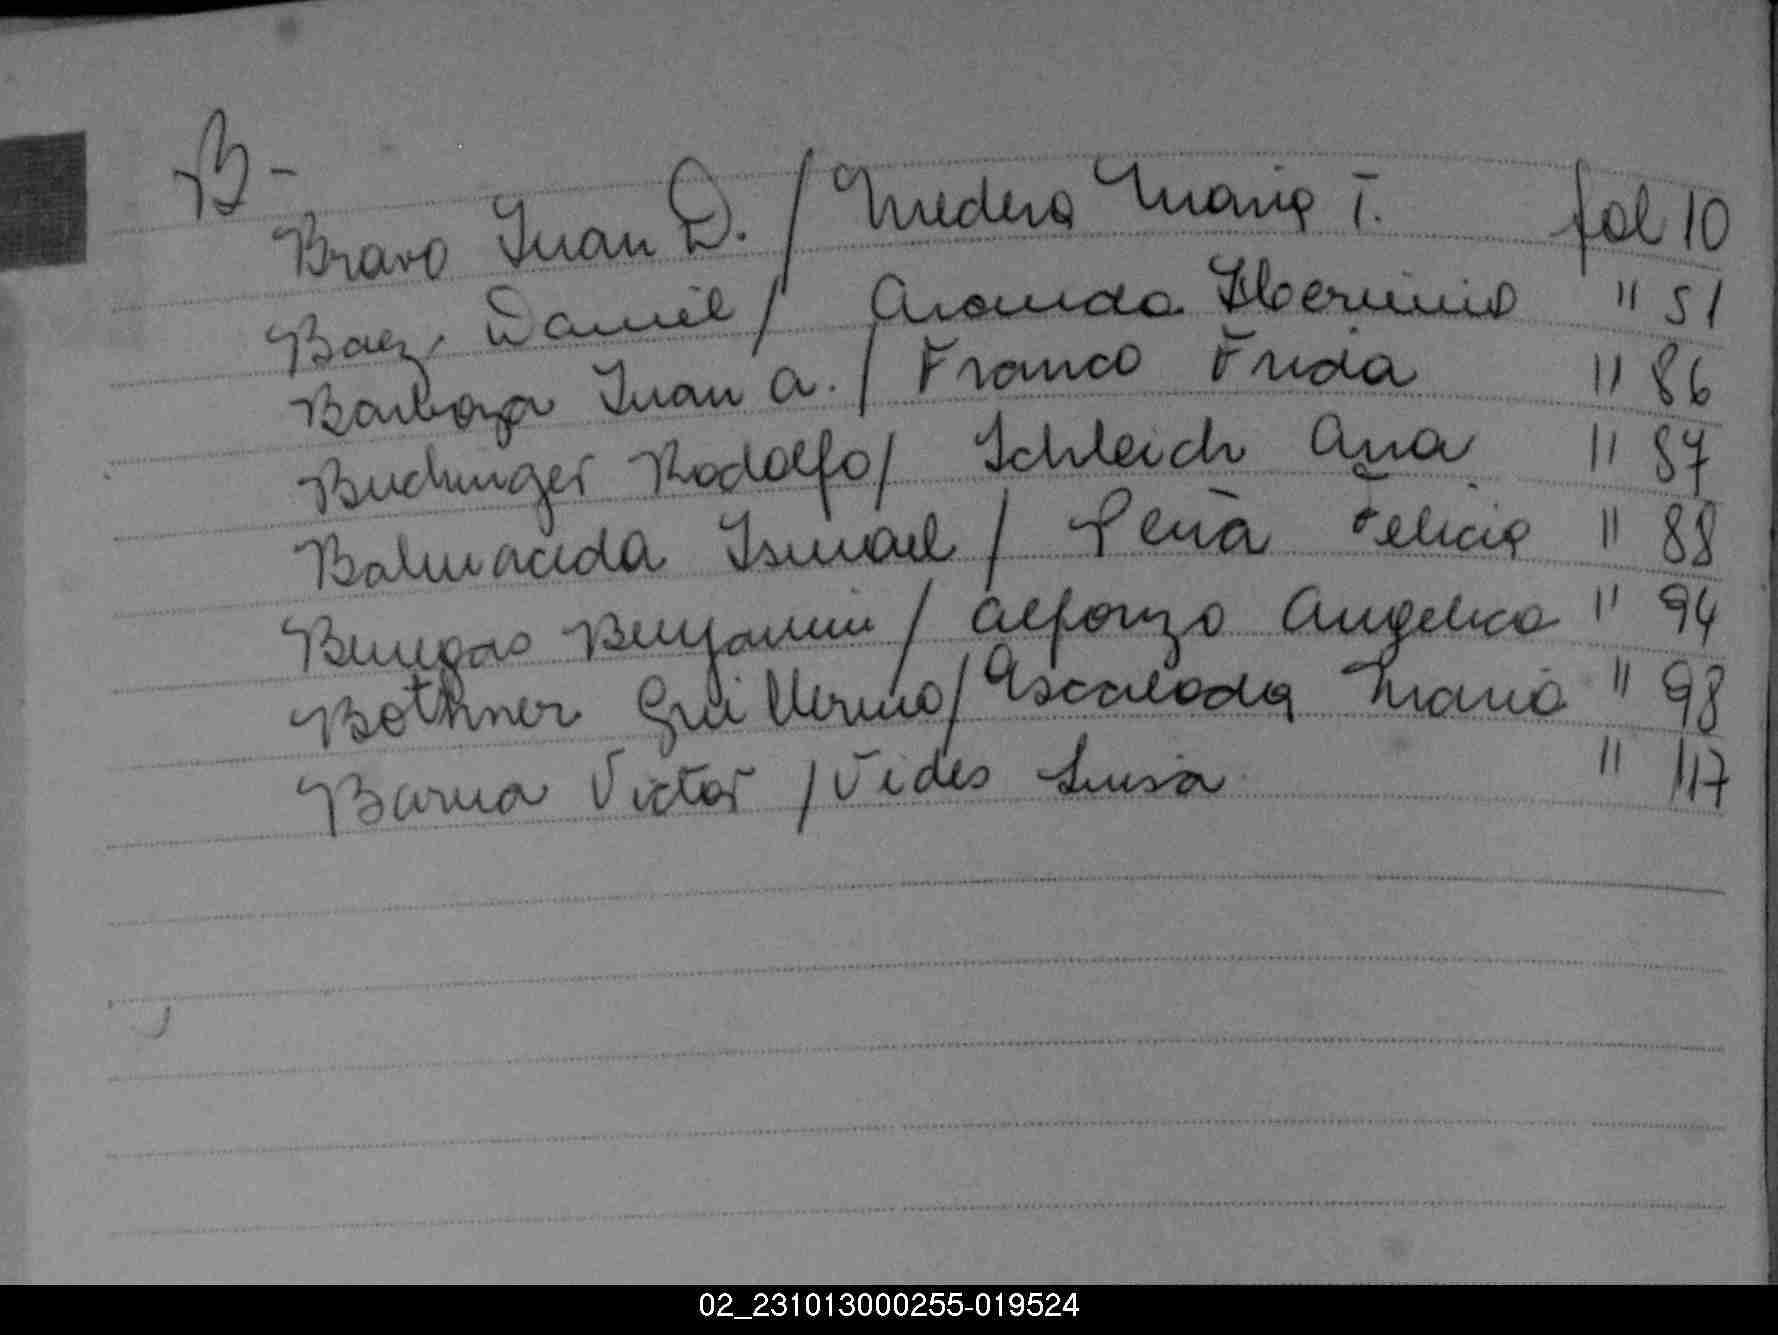 B-
Bravo Juan D. / Medera Maria T. fol 10
Baez, Daniel / Aranda " 51
Barboza Juan A. / Franco Frida " 86
Buchinger Rodolfo / Schleich Ana " 87
Balmaceda Ismael / Peña Felicia " 88
Benegas Benjamin / Alfonzo Angelica " 94
Bothner Guillermo / Escalada Maria " 98
Barua Victor / Vides Luisa " 117
02_231013000255-019524